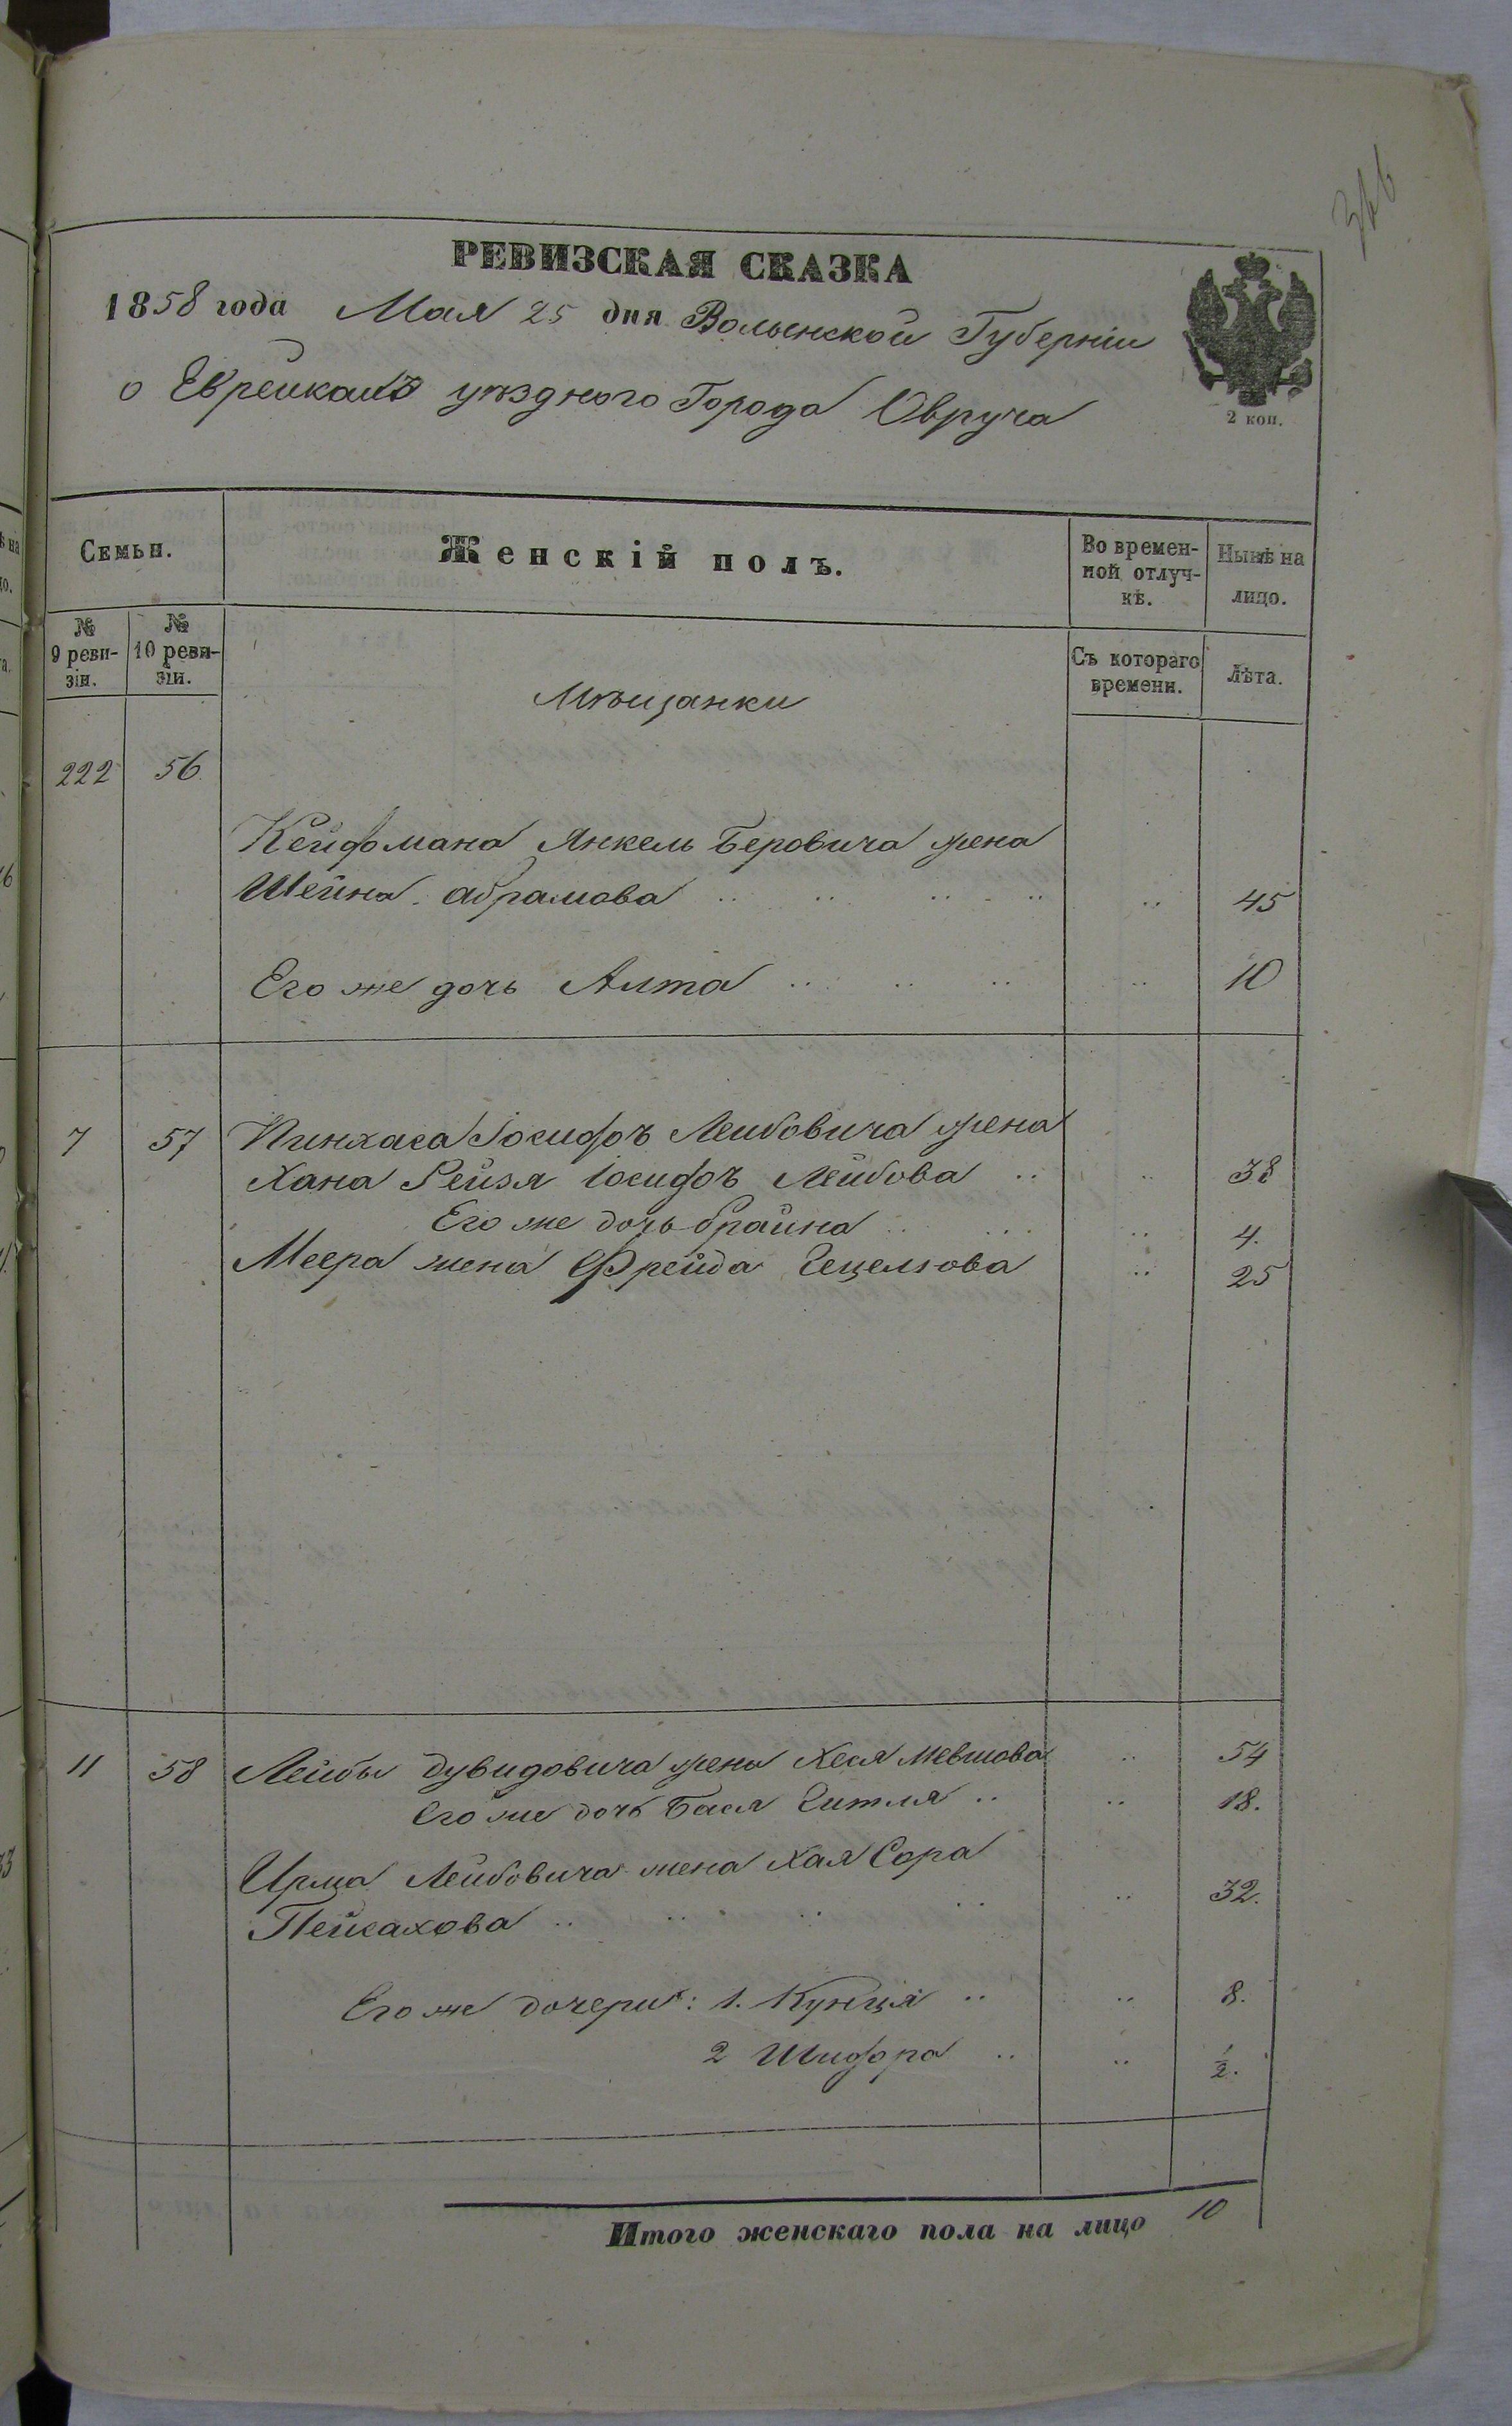 366
РЕВИЗСКАЯ СКАЗКА
1858 года Мая 25 дня Волынской Губерніи
о Еврейкахъ уѣзднаго Города Овруча
2 коп.
Семьи.
Женскій полъ.
Во времен-
ной отлуч-
кѣ.
Нынѣ на
лицо.
№
9 реви-
зіи.
№
10 реви-
зіи.
Съ котораго
времени.
Лѣта.
Мѣщанки
222 56.
Кейфмана Янкель Беровича жена
Шейна Абрамова .. .. .. .. .. 45
Его же дочь Алта .. .. .. .. 10
7 57 Пинхаса Іосифъ Лейбовича жена
Хана Рейзя Іосифъ Лейбова .. .. 38
Его же дочь Брайна .. ... .. 4.
Меера жена Фрейда Гецелюва .. 25
11 58 Лейбы Дувидовича жена Хеся Мевшова .. 54
Его же дочь Бася Гитля .. .. 18.
Лейбовича жена Хая Сора
Пейсахова .. .. .. .. .. 32.
Его же дочери: 1. Кунця .. .. 8.
2 Шифра .. .. 1/2.
Итого женскаго пола на лицо 10